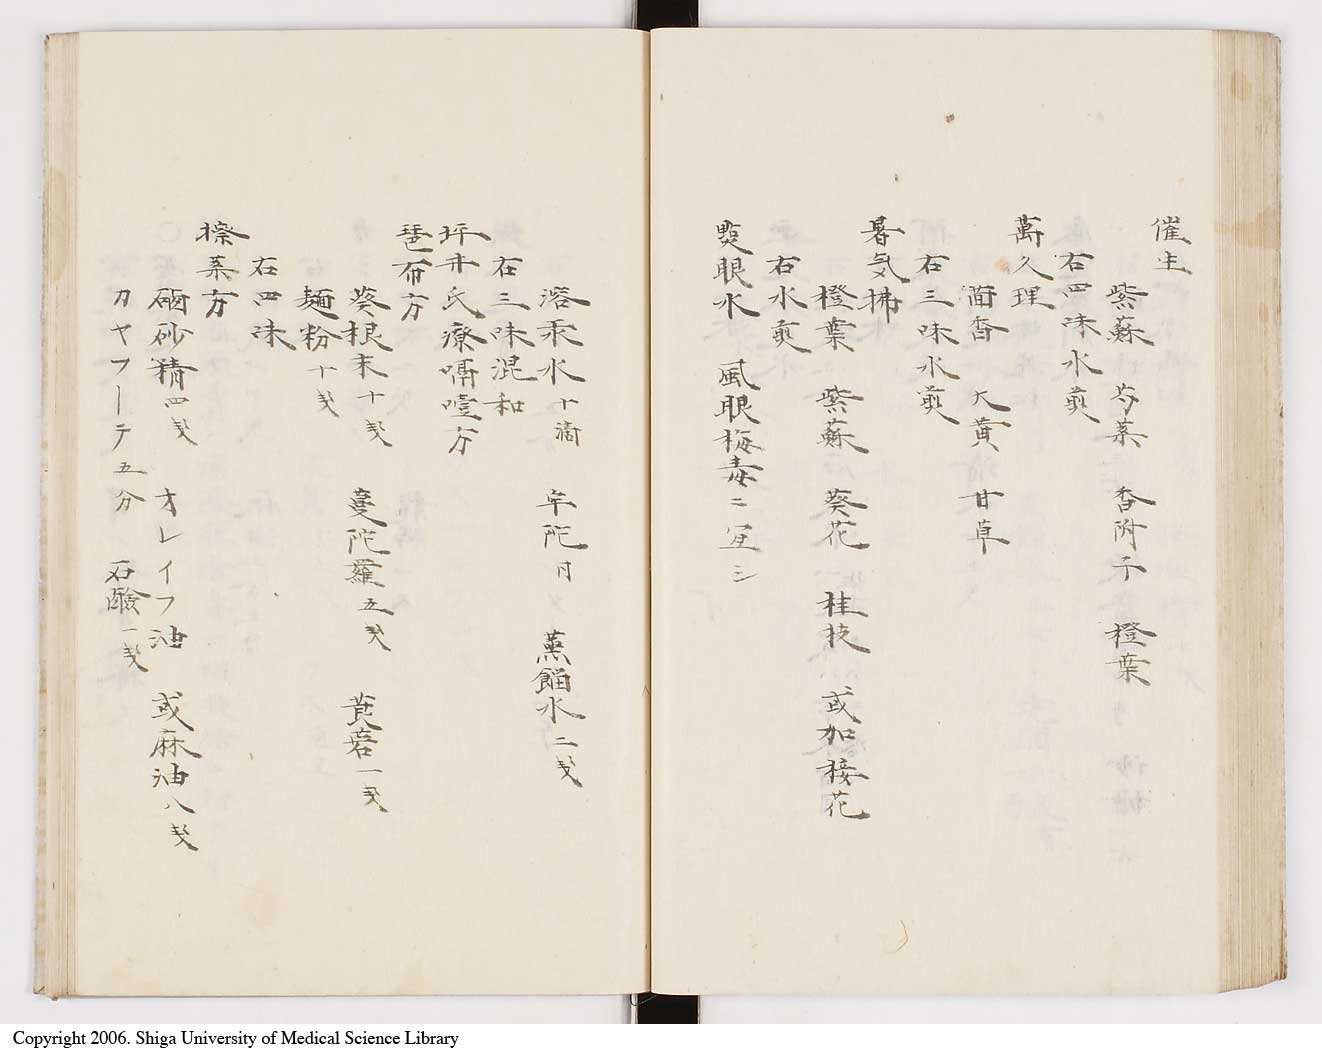 催生
紫蘇 芍薬 香附子 橙葉
右四味水煎
萬久理
茴香 大黄 甘草
右三味水煎
暑気拂
橙葉 紫蘇 葵花 桂枝 或加接花
右水煎
點眼水 風眼梅毒ニ宜シ
溶汞水十滴 牢陀月メ 蒸餾水二戔
右三味混和
坪井氏療嗝噎方
琶布方
葵根末十戔 蔓陀羅五戔 莨菪一戔
麺粉十戔
右四味
擦薬方
硇砂精四戔 オレイフ油 或麻油八戔
カヤフーテ五分 石鹸一戔
Copyright 2006. Shiga University of Medical Science Library